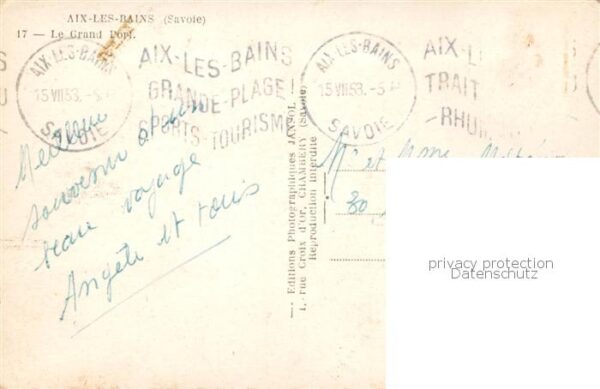 AIX-LES-BAINS (Savoie)
17 — Le Grand Port.
AIX-LES-BAINS
15 VII 53. -5
SAVOIE
AIX-LES-BAINS
GRANDE-PLAGE!
SPORTS-TOURISME
AIX-LES-BAINS
15 VII 53. -5
SAVOIE
AIX-L
TRAIT
-RHUM
souvenir d'un
beau voyage
Angèle et tous
— Editions Photographiques JANSOL
rue Croix d'Or, CHAMBERY (Savoie)
Reproduction interdite
Mr et Mme
80
privacy protection
Datenschutz